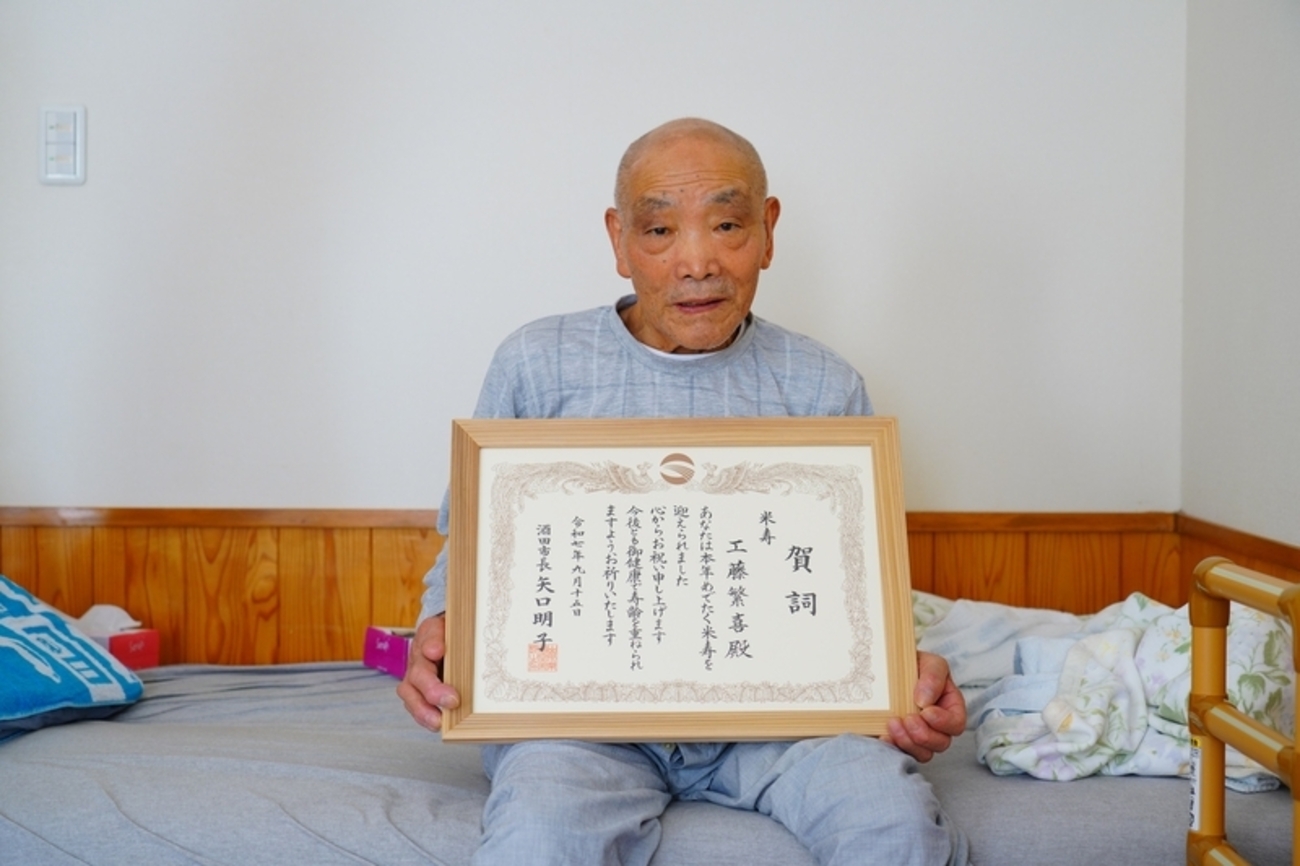 賀詞
米寿
工藤繁喜殿
あなたは本年めでたく米寿を
迎えられました
心からお祝い申し上げます
今後とも御健康で寿齢を重ねられ
ますようお祈りいたします
令和七年九月十五日
酒田市長 矢口明子